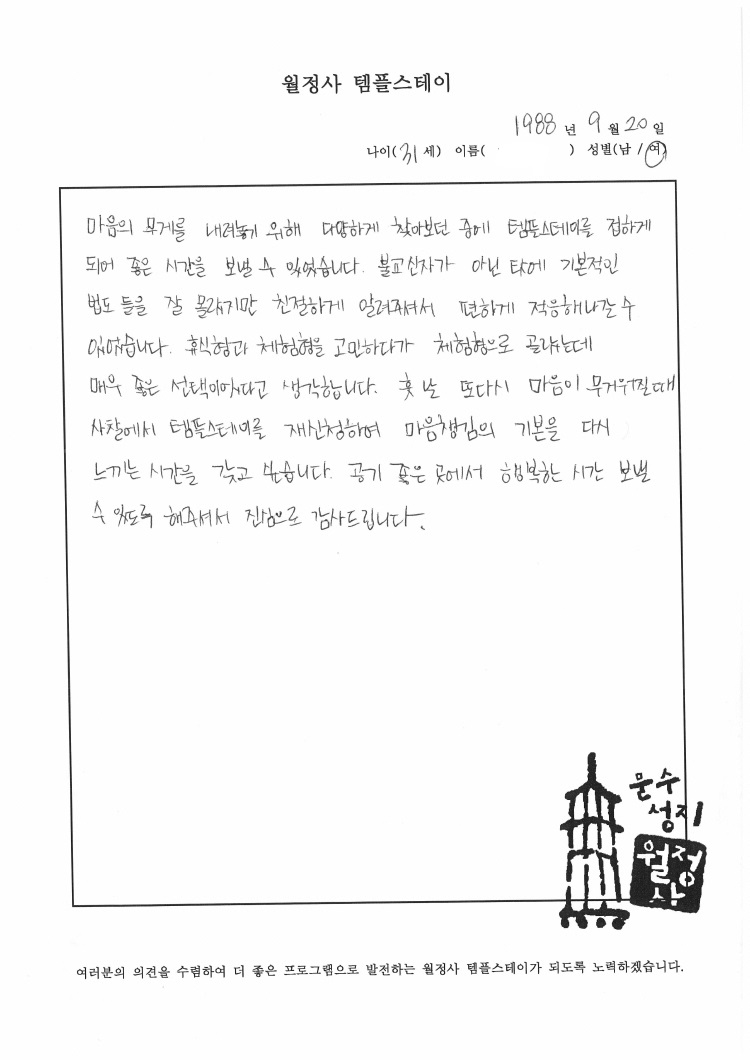 월정사 템플스테이
1988 년 9 월 20 일
나이( 31 세) 이름( ) 성별(남 / 여)
마음의 무게를 내려놓기 위해 다양하게 찾아보던 중에 템플스테이를 접하게
되어 좋은 시간을 보낼 수 있었습니다. 불교신자가 아닌 탓에 기본적인
법도 들을 잘 몰랐지만 친절하게 알려주셔서 편하게 적응해나갈 수
있었습니다. 휴식형과 체험형을 고민하다가 체험형으로 골랐는데
매우 좋은 선택이었다고 생각합니다. 훗 날 또다시 마음이 무거워질때
사찰에서 템플스테이를 재신청하여 마음챙김의 기본을 다시
느끼는 시간을 갖고 싶습니다. 공기 좋은 곳에서 행복한 시간 보낼
수 있도록 해주셔서 진심으로 감사드립니다.
문수
성지
월정
사
여러분의 의견을 수렴하여 더 좋은 프로그램으로 발전하는 월정사 템플스테이가 되도록 노력하겠습니다.